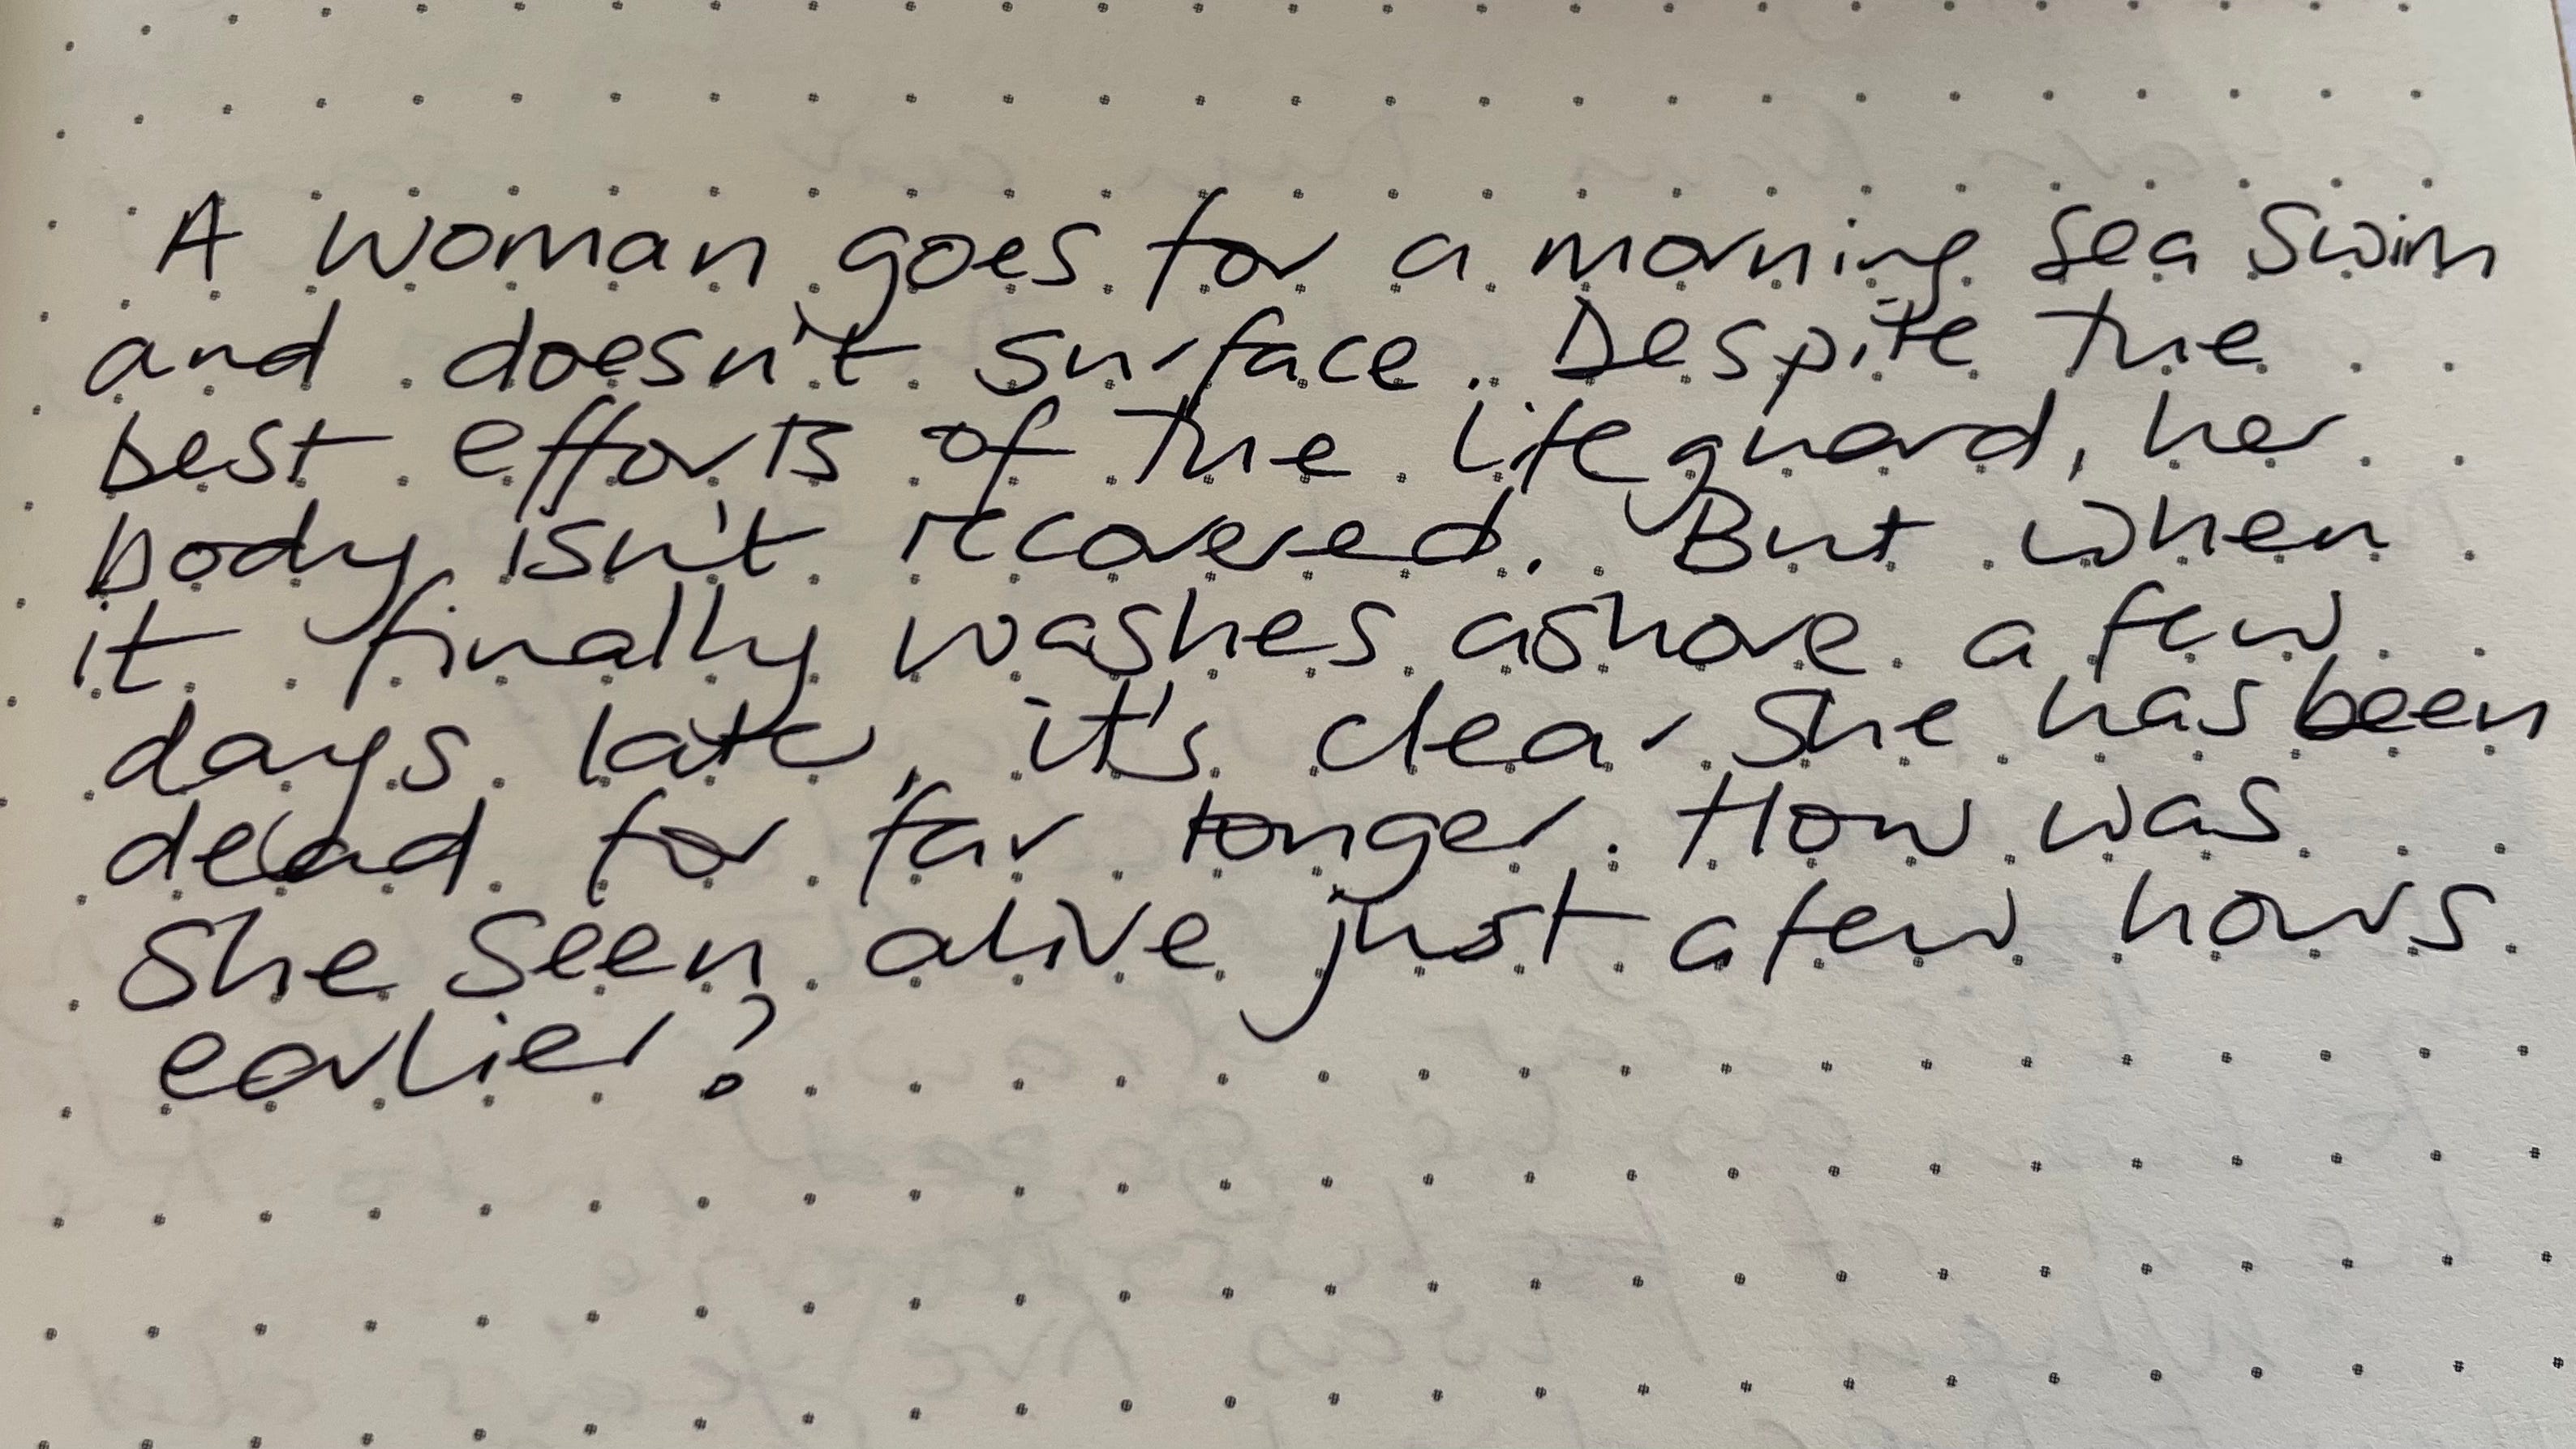 A woman goes for a morning sea swim
and doesn't surface. Despite the
best efforts of the lifeguard, her
body isn't recovered. But when
it finally washes ashore a few
days later, it's clear she has been
dead for far longer. How was
she seen alive just a few hours
earlier?